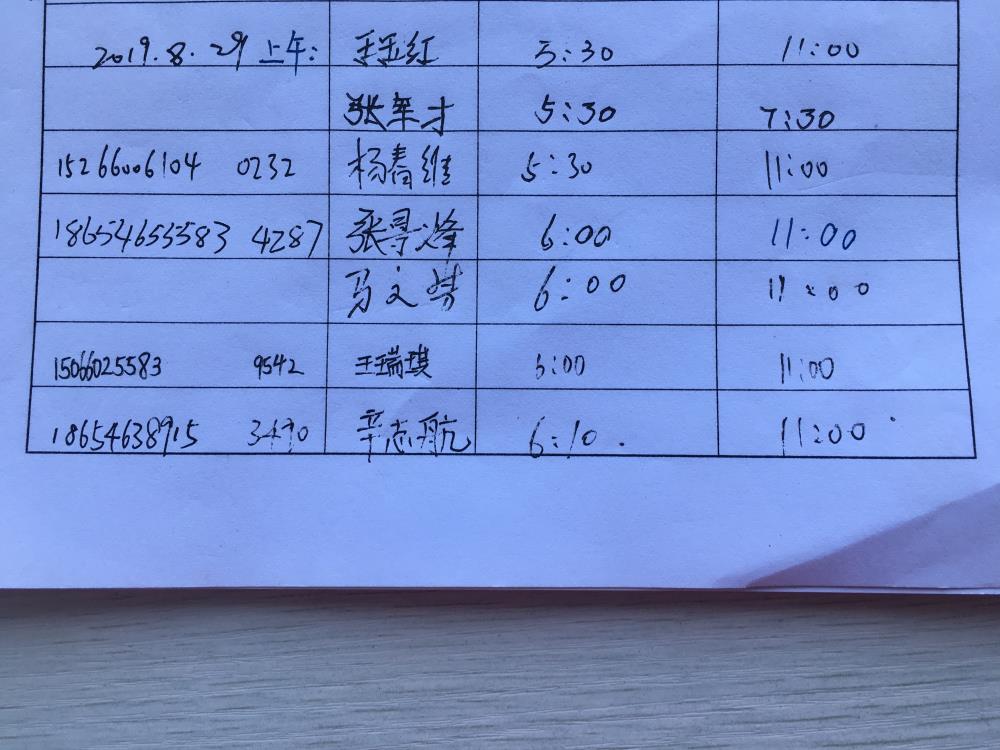 2019.8.29 上午: 王玉红 5:30 11:00
张军才 5:30 7:30
15266006104 0232 杨春维 5:30 11:00
18654655583 4287 张寻烽 6:00 11:00
马文 6:00 11:00
15066025583 9542 王瑞琪 6:00 11:00
18654638915 3490 辛志航 6:10. 11:00